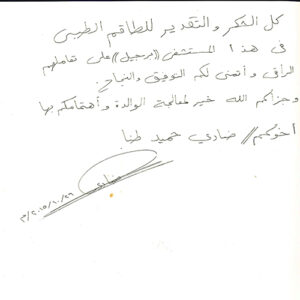 كل الشكر والتقدير للطاقم الطبي
في هذا المستشفى ((برجيل)) على تعاملهم
الراقي وأتمنى لكم التوفيق والنجاح.
وجزاكم الله خير لمعالجة الوالدة وأهتمامكم بها
أخوكم// حميد
٢٠١٥/١٠/٢٦م